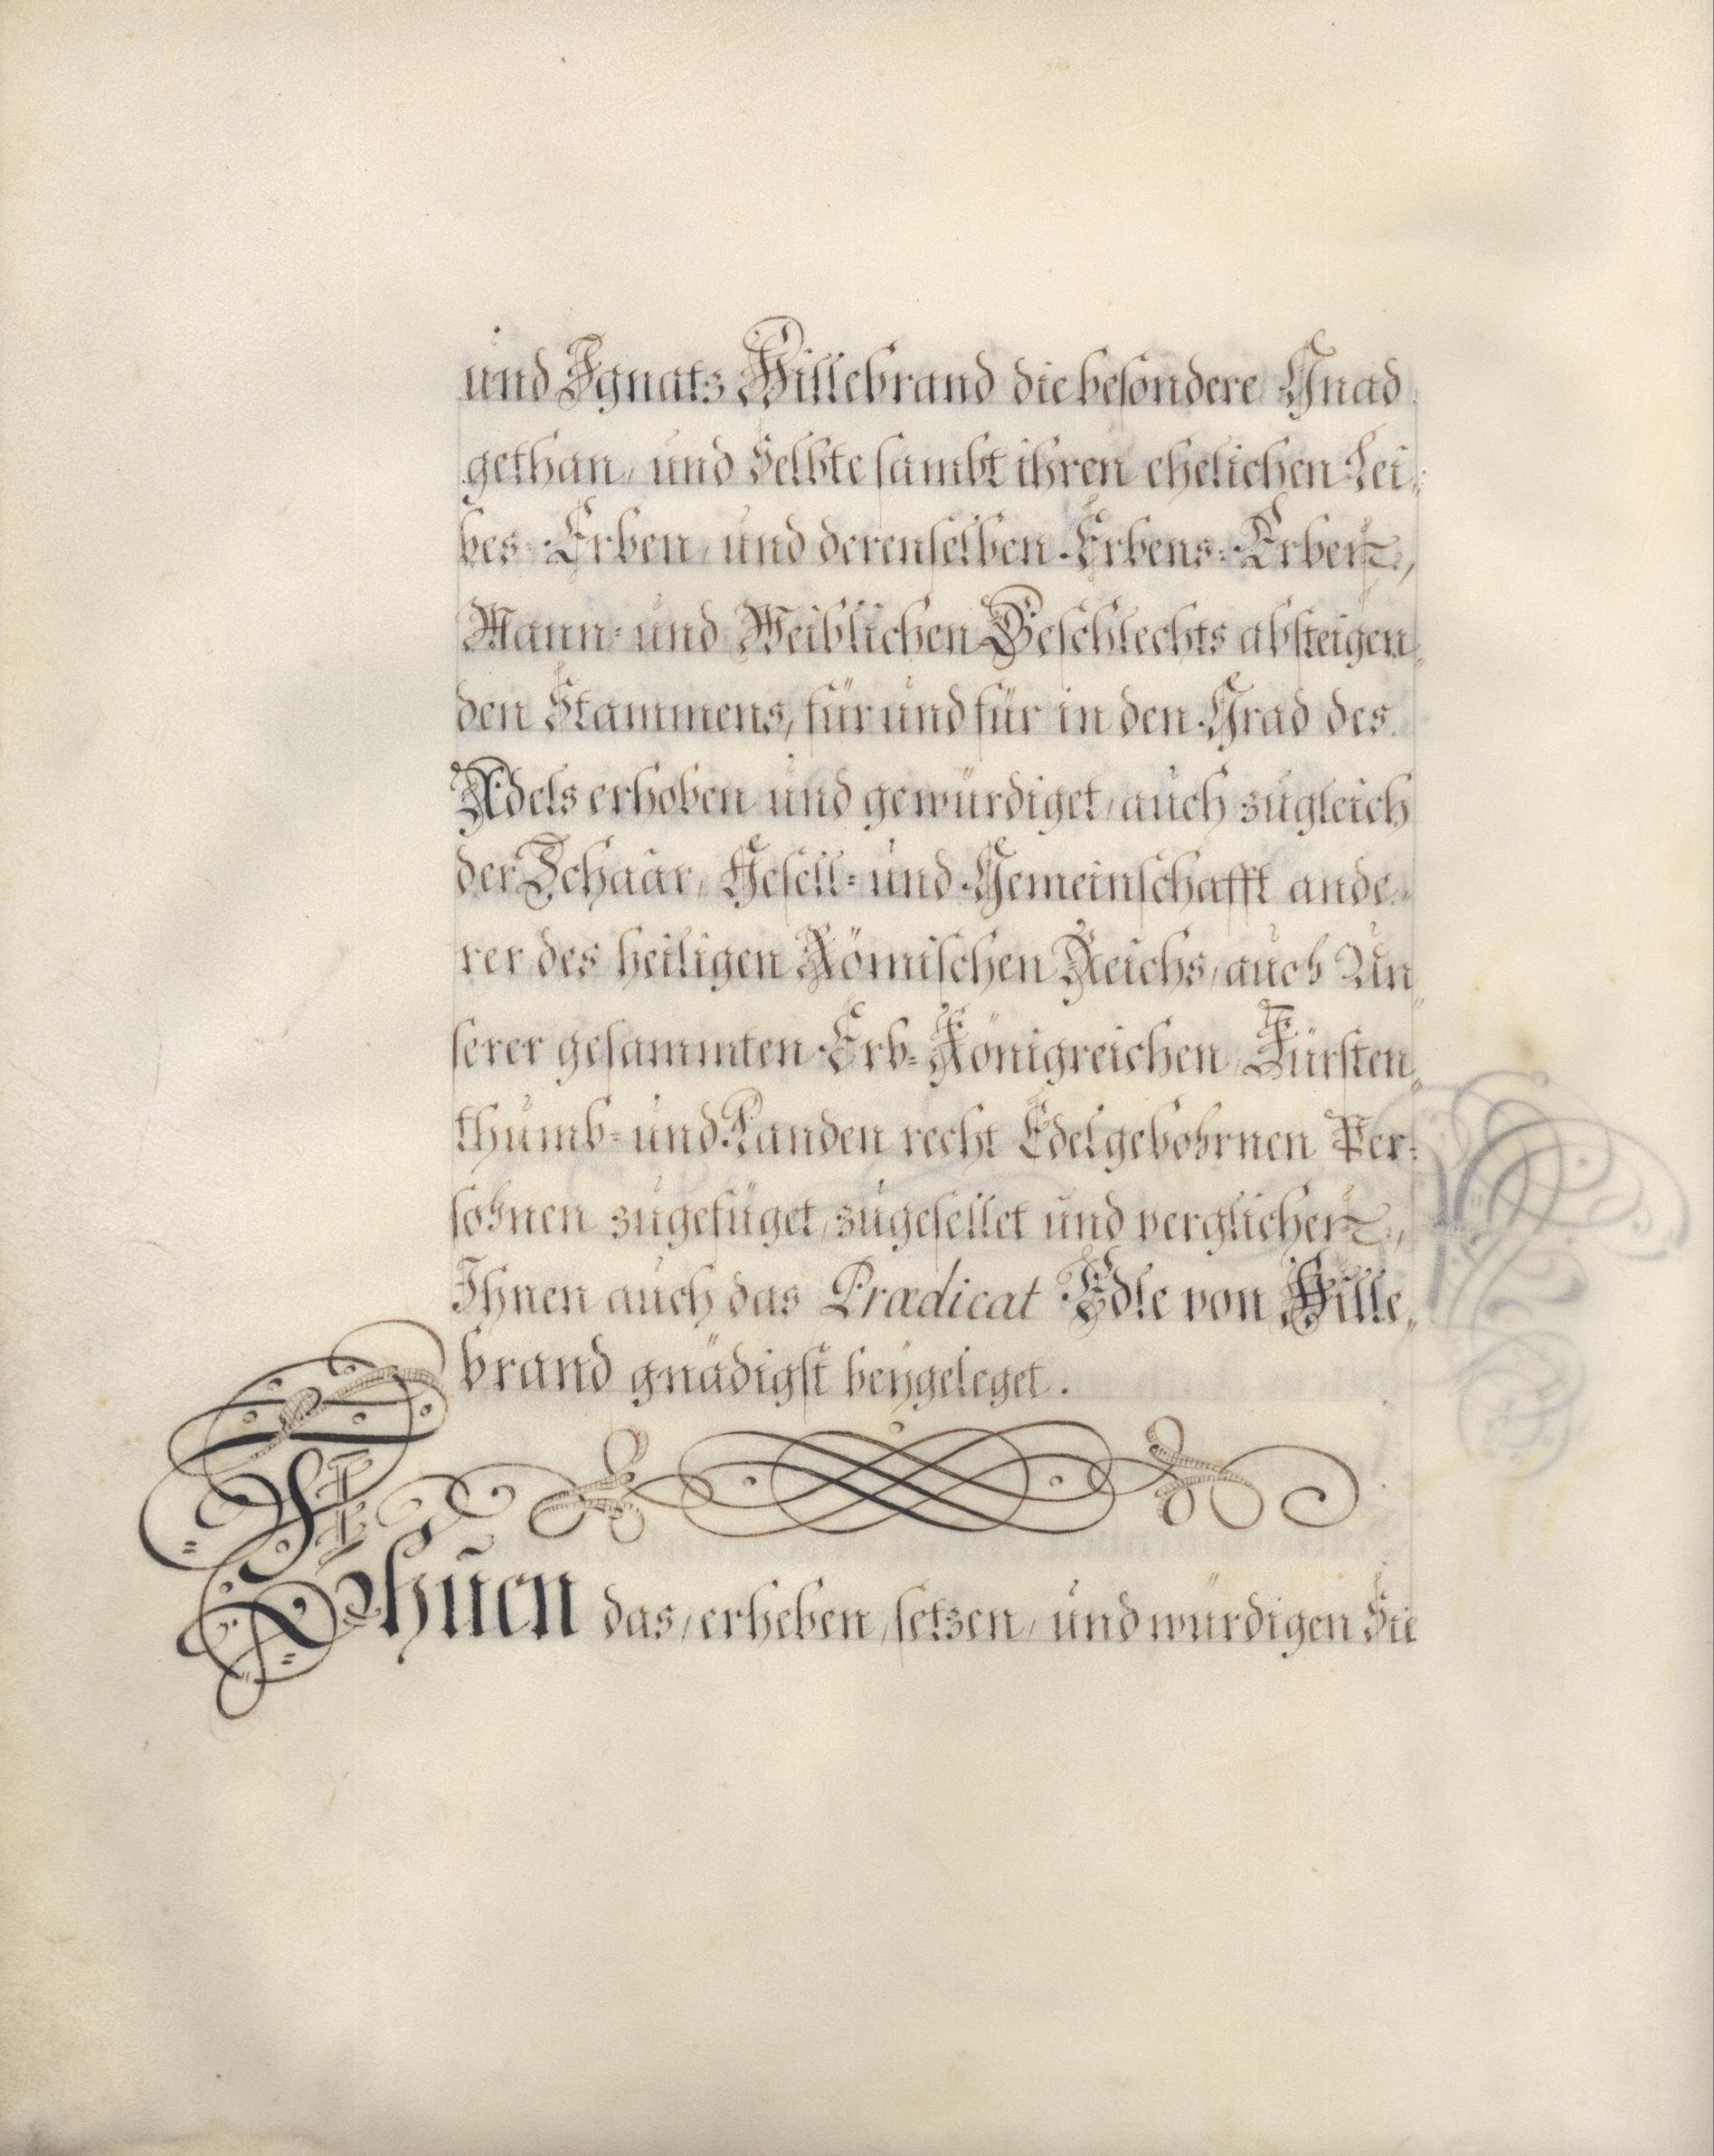 und Ignatz Hillebrand die besondere Gnad
gethan, und Selbte sambt ihren ehelichen Lei=
bes=Erben, und derenselben Erbens=Erben,
Mann= und Weiblichen Geschlechts absteigen=
den Stammens, für und für in den Grad des
Adels erhoben und gewürdiget, auch zugleich
der Schaar, Gesell= und Gemeinschafft ande=
rer des heiligen Römischen Reichs, auch Un=
serer gesammten Erb=Königreichen, Fürsten=
thumb= und Landen recht Edelgebohrnen Per=
sohnen zugefüget, zugesellet und verglichen,
Ihnen auch das Prædicat Edle von Hille=
brand gnädigst beygeleget.
Thuen das, erheben, setzen, und würdigen Sie